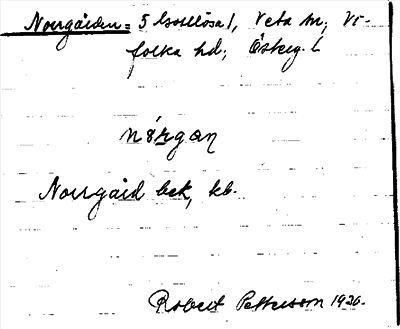 Norrgården = 5 Sörslösa /, Veta sn; Vi-
folka hd; Öskg. l
nǿrgaṇ
Norrgård bek, kb.
Robert Pettersson 1926.